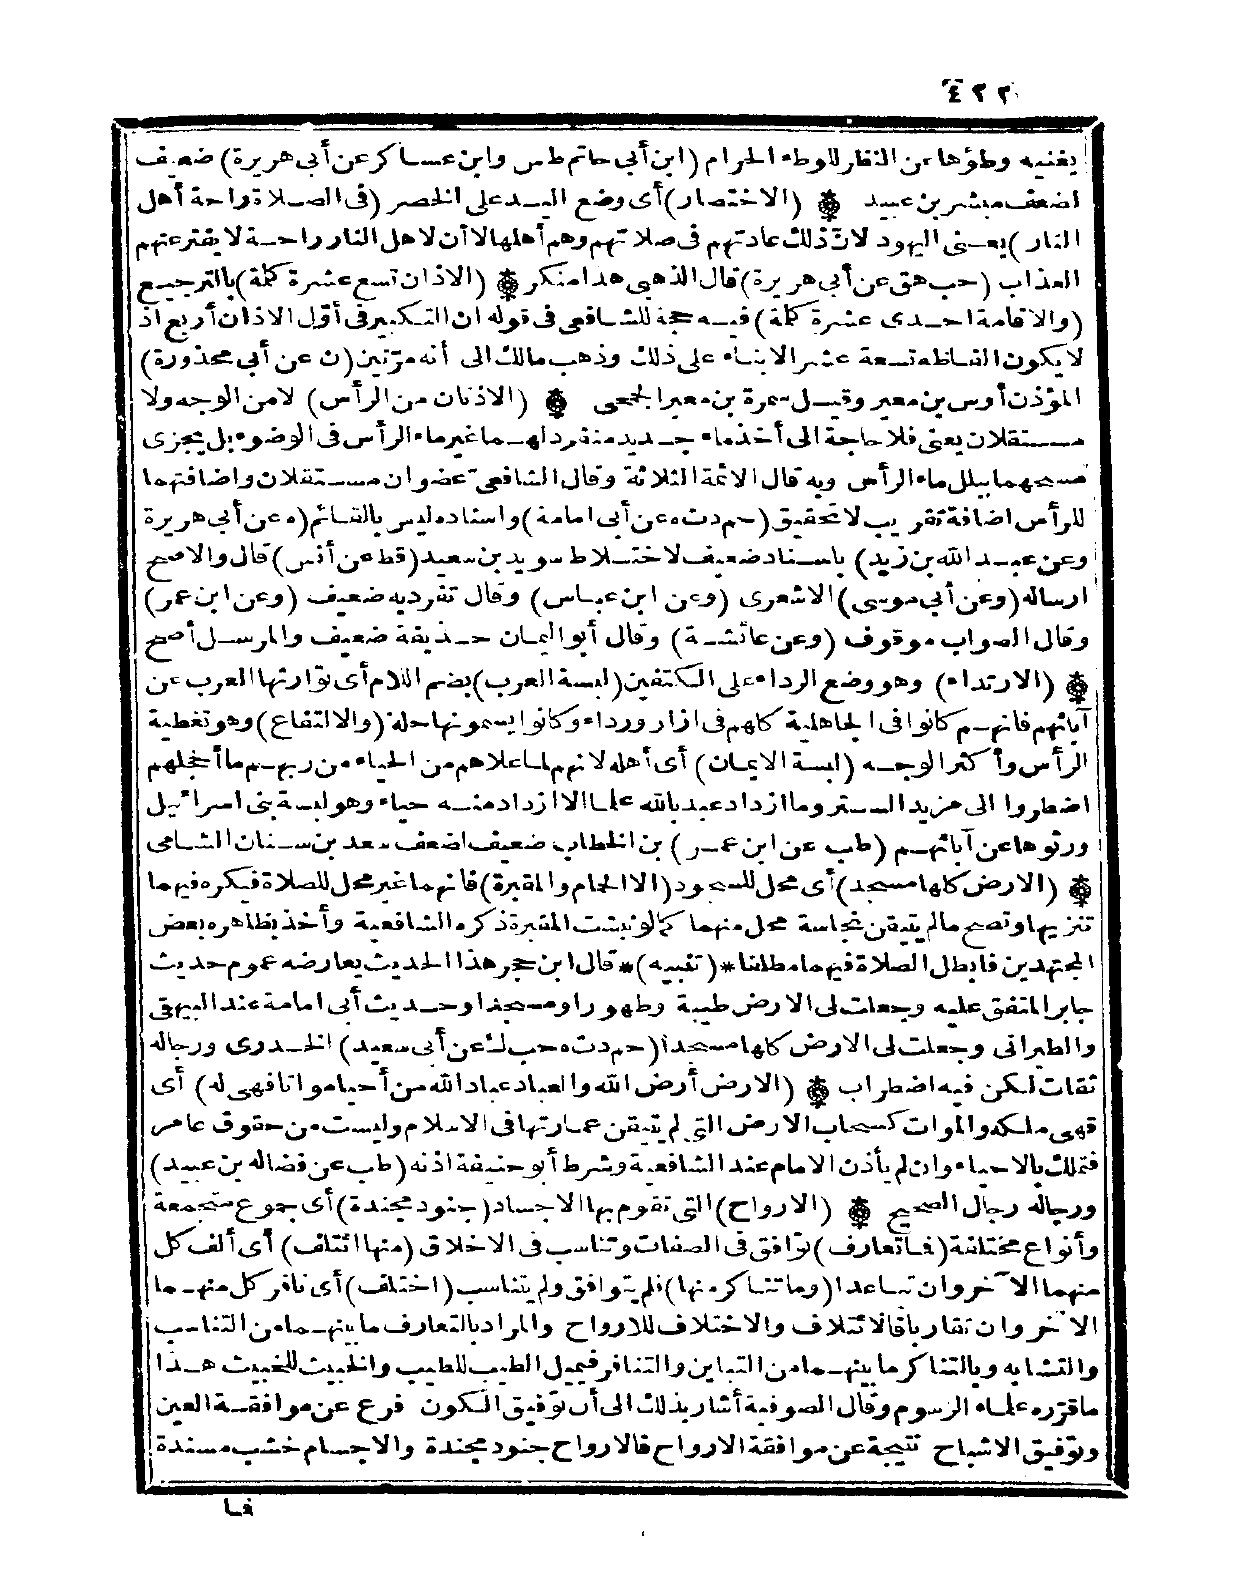 ٤٢٢
يغنيه وطؤها عن النظر للوطء الحرام (ابن أبي حاتم طس وابن عساكر عن أبي هريرة) ضعيف
لضعف مبشر بن عبيد ۞ (الاختصار) أى وضع اليد على الخصر (فى الصلاة راحة أهل
النار) يعنى اليهود لان ذلك عادتهم فى صلاتهم وهم أهلها لا أن لاهل النار راحة لا يفتر عنهم
العذاب (حب هق عن أبى هريرة) قال الذهبى هذا منكر ۞ (الاذان تسع عشرة كلمة) بالترجيع
(والاقامة احدى عشرة كلمة) فيه حجة للشافعى فى قوله ان التكبير فى أول الاذان أربع اذ
لا يكون ألفاظه تسعة عشر الا بناء على ذلك وذهب مالك الى أنه مرتين (ن عن أبى محذورة)
المؤذن أوس بن معير وقيل سمرة بن معير الجمحى ۞ (الاذنان من الرأس) لا من الوجه ولا
مستقلان يعنى فلا حاجة الى أخذ ماء جديد منفرد لهما غير ماء الرأس فى الوضوء بل يجزى
مسحهما ببلل ماء الرأس وبه قال الائمة الثلاثة وقال الشافعى عضوان مستقلان واضافتهما
للرأس اضافة تقريب لا تحقيق (حم د ت ه عن أبى امامة) واسناده ليس بالقائم (ه عن أبى هريرة
وعن عبد الله بن زيد) باسناد ضعيف لاختلاط سويد بن سعيد (قط عن أنس) قال والاصح
ارساله (وعن أبى موسى) الاشعرى (وعن ابن عباس) وقال تفرد به ضعيف (وعن ابن عمر)
وقال الصواب موقوف (وعن عائشة) وقال أبو اليمان حذيفة ضعيف والمرسل أصح
۞ (الارتداء) وهو وضع الرداء على الكتفين (لبسة العرب) بضم اللام أى توارثها العرب عن
آبائهم فانهم كانوا فى الجاهلية كلهم فى ازار ورداء وكانوا يسمونها حلة (والالتفاع) وهو تغطية
الرأس وأكثر الوجه (لبسة الايمان) أى أهله لانهم لما علاهم من الحياء من ربهم ما أخجلهم
اضطروا الى مزيد الستر وما ازداد عبد بالله علما الا ازداد منه حياء وهو لبسة بنى اسرائيل
ورثوها عن آبائهم (طب عن ابن عمر) بن الخطاب ضعيف لضعف سعد بن سنان الشامى
۞ (الارض كلها مسجد) أى محل للسجود (الا الحمام والمقبرة) فانهما غير محل للصلاة فيكره فيهما
تنزيها وتصح ما لم يتيقن نجاسة محل منهما كما لو نبشت المقبرة ذكره الشافعية وأخذ بظاهره بعض
المجتهدين فابطل الصلاة فيهما مطلقا *(تنبيه)* قال ابن حجر هذا الحديث يعارضه عموم حديث
جابر المتفق عليه وجعلت لى الارض طيبة وطهورا ومسجدا وحديث أبى امامة عند البيهقى
والطبرانى وجعلت لى الارض كلها مسجدا (حم د ت ه حب ك عن أبى سعيد) الخدرى ورجاله
ثقات لكن فيه اضطراب ۞ (الارض أرض الله والعباد عباد الله من أحيا مواتا فهى له) أى
فهى ملكه والموات كسحاب الارض التى لم يتيقن عمارتها فى الاسلام وليست من حقوق عامر
فتملك بالاحياء وان لم يأذن الامام عند الشافعية وشرط أبو حنيفة اذنه (طب عن فضاله بن عبيد)
ورجاله رجال الصحيح ۞ (الارواح) التى تقوم بها الاجساد (جنود مجندة) أى جموع متجمعة
وأنواع مختلفة (فما تعارف) توافق فى الصفات وتناسب فى الاخلاق (منها ائتلف) أى ألف كل
منهما الآخر وان تباعدا (وما تناكر منها) فلم يتوافق ولم يتناسب (اختلف) أى نافر كل منهما
الآخر وان تقاربا فالائتلاف والاختلاف للارواح والمراد بالتعارف ما بينهما من التناسب
والتشابه وبالتناكر ما بينهما من التباين والتنافر فيميل الطيب للطيب والخبيث للخبيث هذا
ما قرره علماء الرسوم وقال الصوفية أشار بذلك الى أن توفيق الكون فرع عن موافقة العين
وتوفيق الاشباح نتيجة عن موافقة الارواح فالارواح جنود مجندة والاجسام خشب مسندة
فا